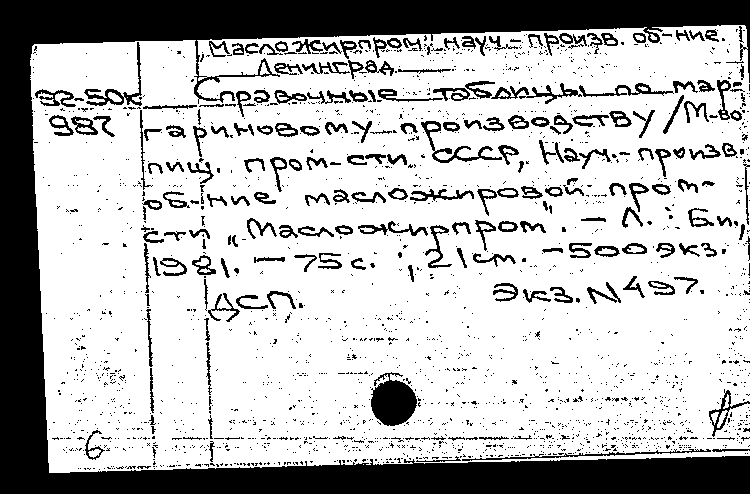 „Масложирпром", науч.- произв. об-ние.
Ленинград.
92-50к Справочные таблицы по мар-
987 гариновому производству / М-во
пищ. пром-сти СССР, Науч.-произв.
об-ние масложировой пром-
сти „Масложирпром". – Л. : Б.и.,
1981. – 75 с. ; 21 см. – 500 экз.
ДСП. Экз. N 497.
6